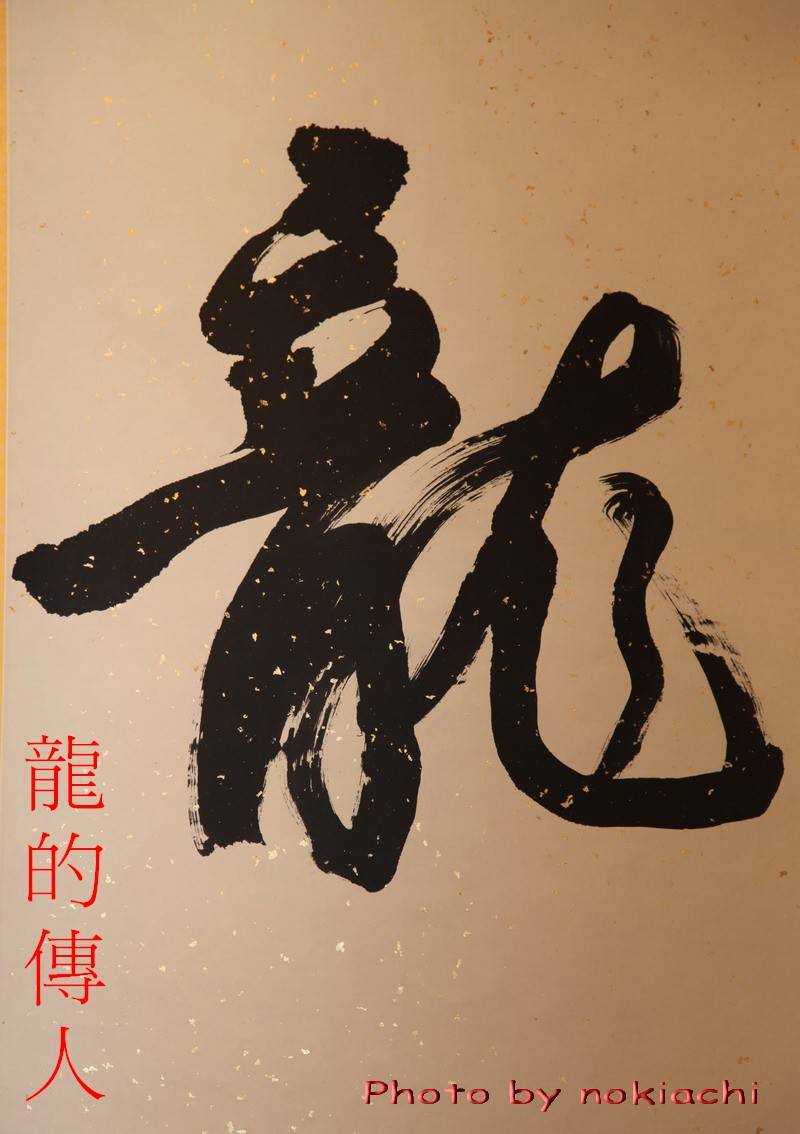 龍
龍的傳人
Photo by nokiachi